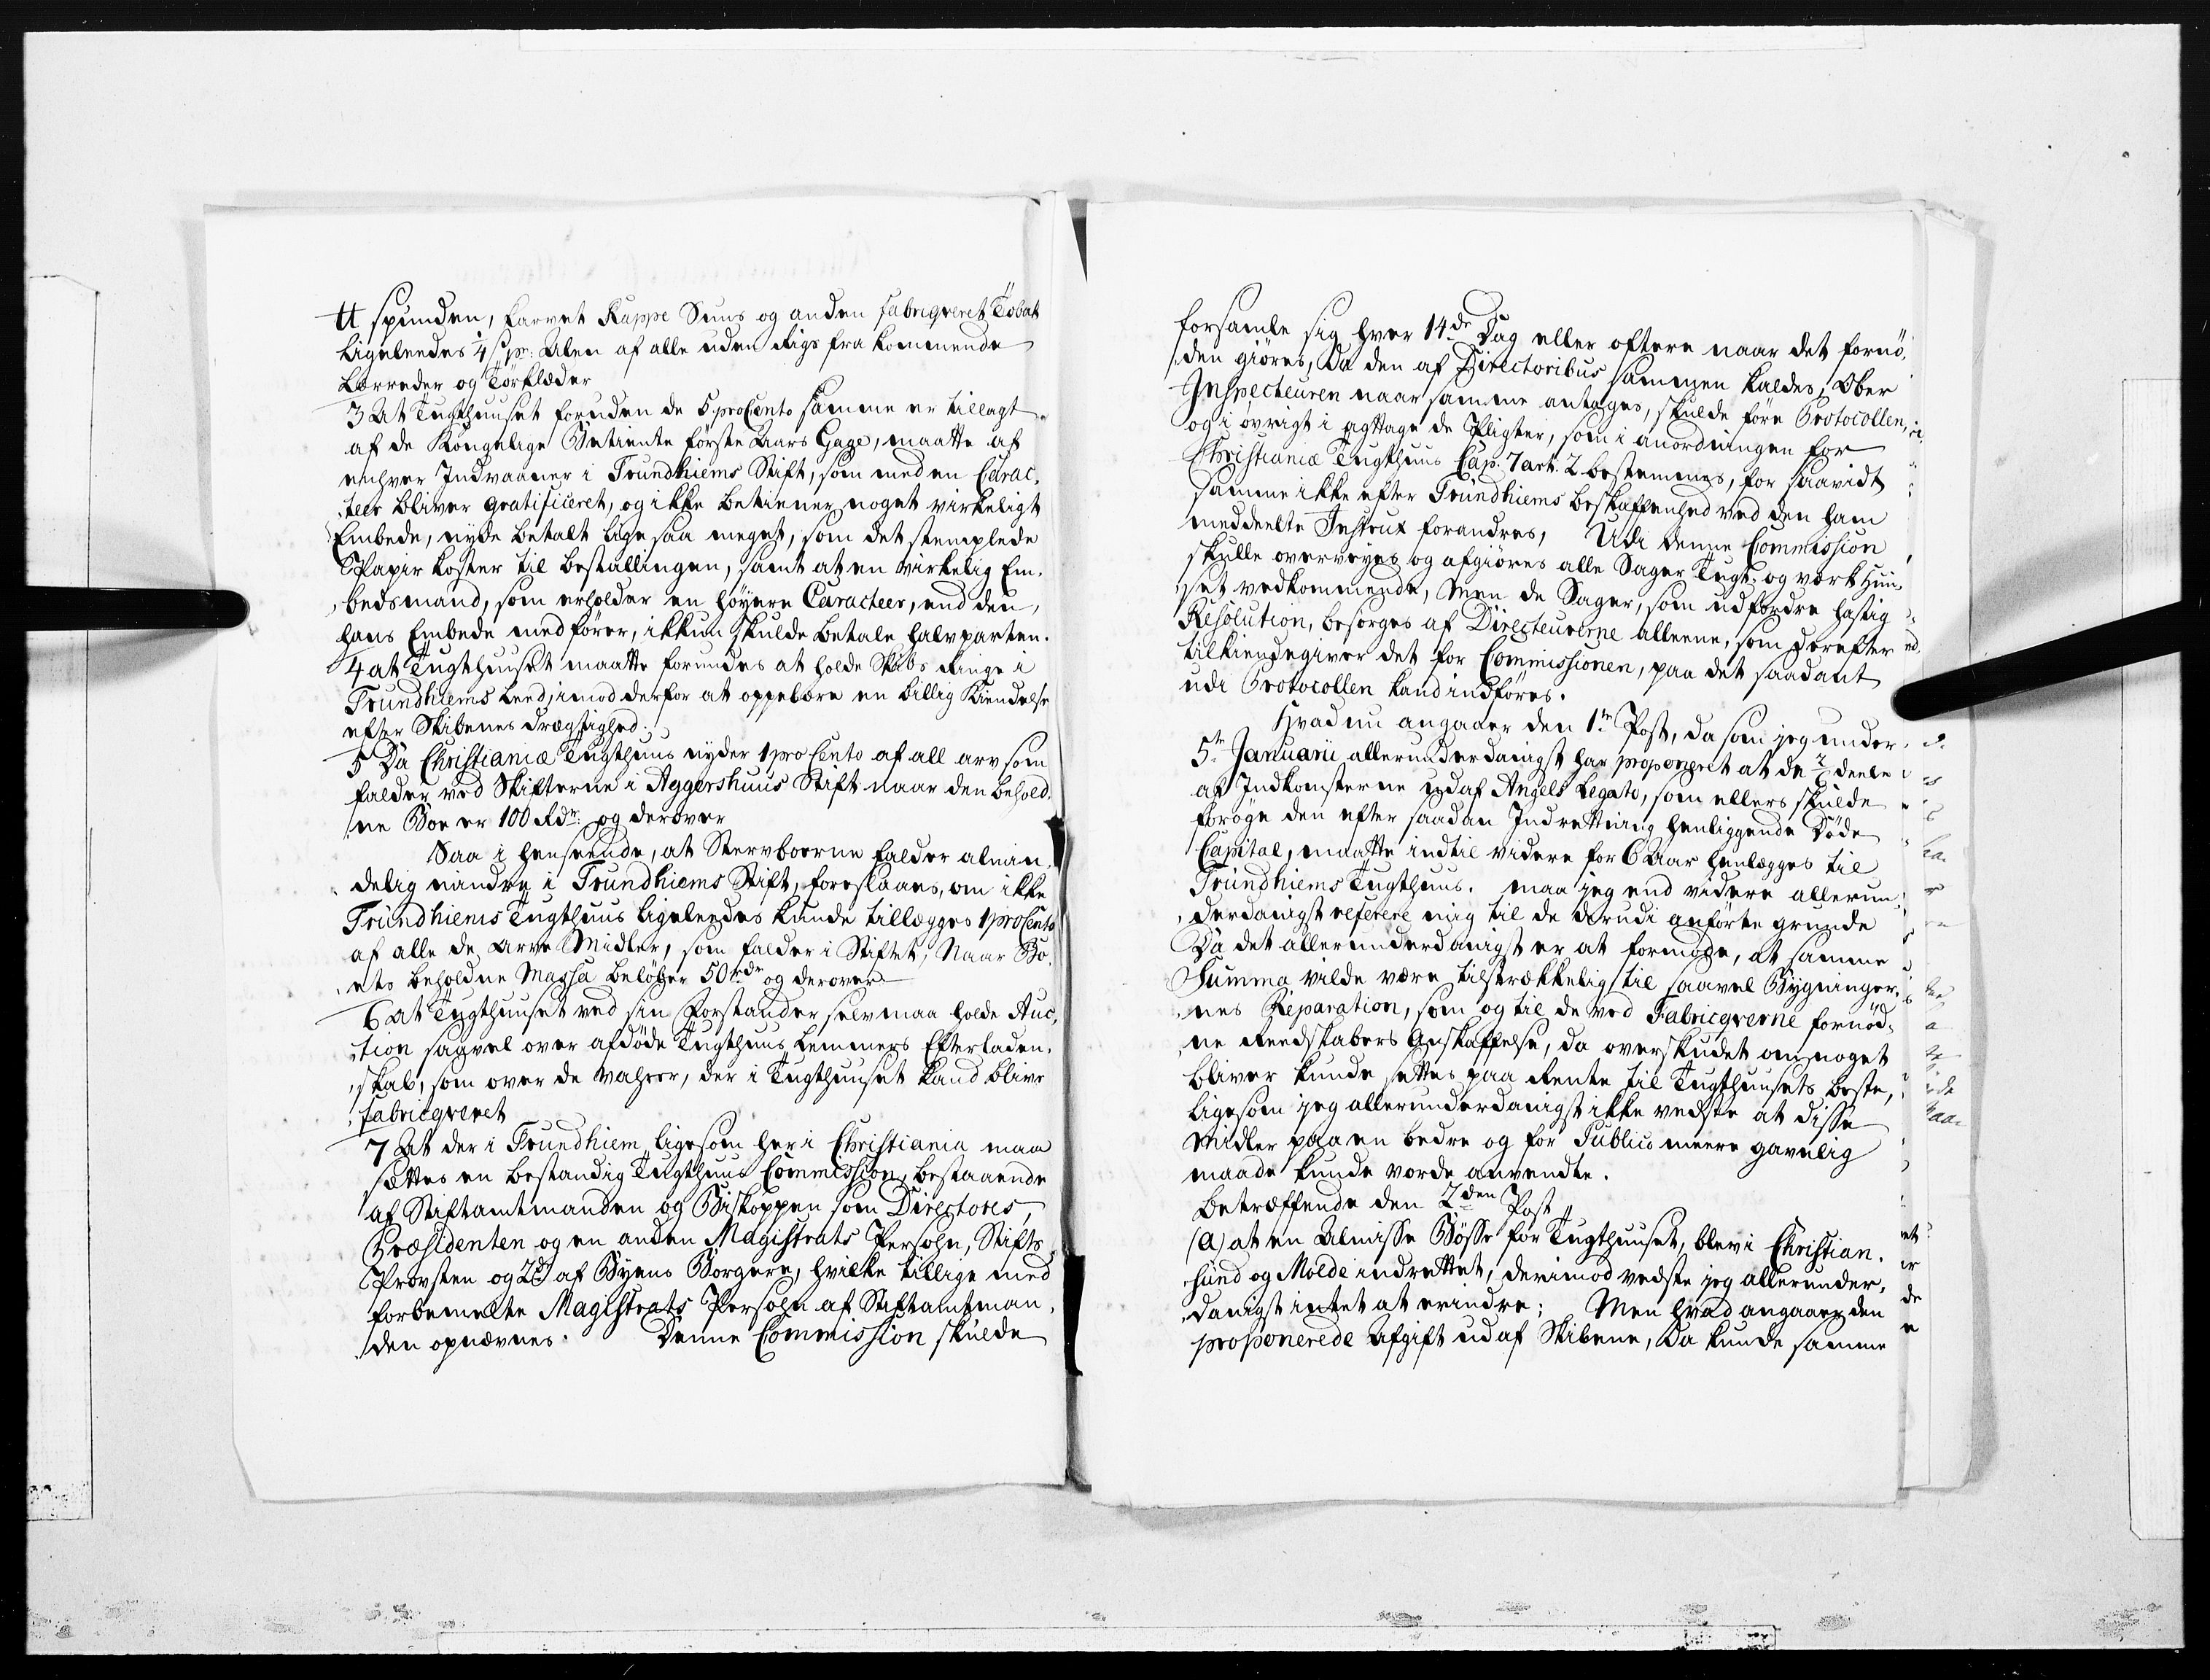 ℔ spunden, karvet Rappe Snuus og anden fabriqveret Tobak
ligeleedes 4 s pr: Alen af alle uden Rigs fra kommende
Lærreder og Törklæder
3 At Tugthuuset foruden de 5 pro Cento samme er tillagt
af de Kongelige Betiente förste Aars Gage, maatte af
enhver Indvaaner i Trundhiems Stift, som med en Carac-
teer bliver gratificeret, og ikke betiener noget virkeligt
Embede, nyde betalt lige saa meget, som det stemplede
Papir koster til bestallingen, samt at en virkelig Em-
bedsmand, som erholder en höyere Caracteer, end den
hans Embede medförer, ikkun skulde betale halvparten.
4 at Tugthuuset maatte forundes at holde Skibs Ringe i
Trundhiems Leed, imod derfor at oppebære en billig Kiendelse
efter Skibenes Drægtighed.
5 Da Christianiæ Tugthuus nyder 1 pro Cento af all arv som
falder ved Skifterne i Aggershuus Stift naar den behold-
ne Boe er 100 Rdr: og derover
Saa i henseende, at Stervboerne falder almin-
delig mindre i Trundhiems Stift, foreslaaes, om ikke
Trundhiems Tugthuus ligeleedes kunde tillægges 1 pro Cento
af alle de Arve Midler, som falder i Stiftet, Naar Bo-
ets beholdne Massa belöber 50 rdr og derover
6 At Tugthuuset ved sin Forstander selv maa holde Auc-
tion saavel over afdöde Tugthuus Lemmers Efterladen-
skab, som over de Vahrer, der i Tugthuuset kand blive
fabricqveret
7 At der i Trundhiem ligesom her i Christiania maa
sættes en bestandig Tugthuus Commission, bestaaende
af Stiftamtmanden og Biskoppen som Directores,
Præsidenten og en anden Magistrats Persohn, Stifts
Provsten og 2de af Byens Borgere, hvilke tillige med
forbemelte Magistrats Persohn af Stiftamtman-
den opnævnes. Denne Commission skulde
forsamle sig hver 14de Dag eller oftere naar det fornö-
den giöres, da den af Directoribus sammen kaldes, Ober
Inspecteuren naar samme antages, skulde före Protocollen,
og i övrigt i agttage de Pligter, som i anordningen for
Christianiæ Tugthuus Cap. 7 art. 2 bestemmes, for saavidt
samme ikke efter Trundhiems beskaffenhed ved den ham
meddeelte Instrux forandres, Udi denne Commission
skulle overveyes og afgiöres alle Sager Tugt- og værk Huu-
set vedkommende, Men de Sager, som udfordre hastig
Resolution, besörges af Directeurerne alleene, som derefter
tilkiendegiver det for Commissionen, paa det saadant
udi Protocollen kand indföres.
Hvad nu angaaer den 1te Post, da som jeg under
5te Januarii allerunderdanigst har proponeret at de deele
af Indkomsterne udaf Angels Legato, som ellers skulde
foröge den efter saadan Indretning henliggende Döde
Capital, maatte indtil videre for 6 Aar henlægges til
Trundhiems Tugthuus. maa jeg end videre allerun-
derdanigst referere mig til de derudi anförte grunde
Da det allerunderdanigst er at formode, at samme
Summa vilde være tilstrækkelig til saavel Bygninger-
nes Reparation, som og til de ved Fabricqverne fornöd-
ne Reedskabers Anskaffelse, da overskudet om noget
bliver kunde settes paa Rente til Tugthuusets beste,
ligesom jeg allerunderdanigst ikke vedste at disse
Midler paa en bedre og for Publico meere gavnlig
maade kunde vorde anvendte.
Betræffende den 2den Post
(a) at en Almisse Bösse for Tugthuuset, blev i Christian-
sund og Molde indrettet, derimod vedste jeg allerunder-
danigst intet at erindre; Men hvad angaaer den
proponerede Afgift ud af Skibene, Da kunde samme